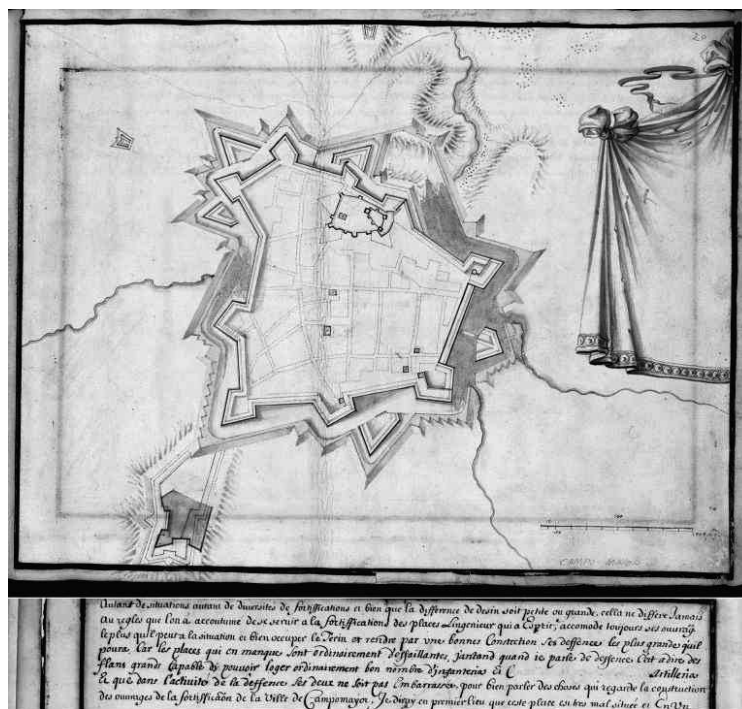 20
CAMPO MAIOR
Autant de situations autant de diversites de fortiffications et bien que la difference de desin soit petite ou grande, cella ne differe Jamais
Au regles que lon a accoutume de se servir a la fortiffication des places Lingenieur qui a Esprit, accomode toujours ses ouvrag
le plus quil peut a la situation et bien occuper le Terin et rendre par une bonnes Constection Ses deffences les plus grandes quil
poura. Car les places qui en manque sont ordinairement deffaillantes, jantand quand ie parle de deffences Cest adire des
flans grands Capable di pouvoir loger ordinairement bon nombre dinfanteria et C Artilleria
Et que dans lactivite de la deffence Ses deux ne soit pas Embarrasser, pour bien parler des choses qui regarde la construction
des ouvrages de la fortiffication de la Ville de Campomayor, Je diray en premier lieu que ceste place est tres mal située et En Un